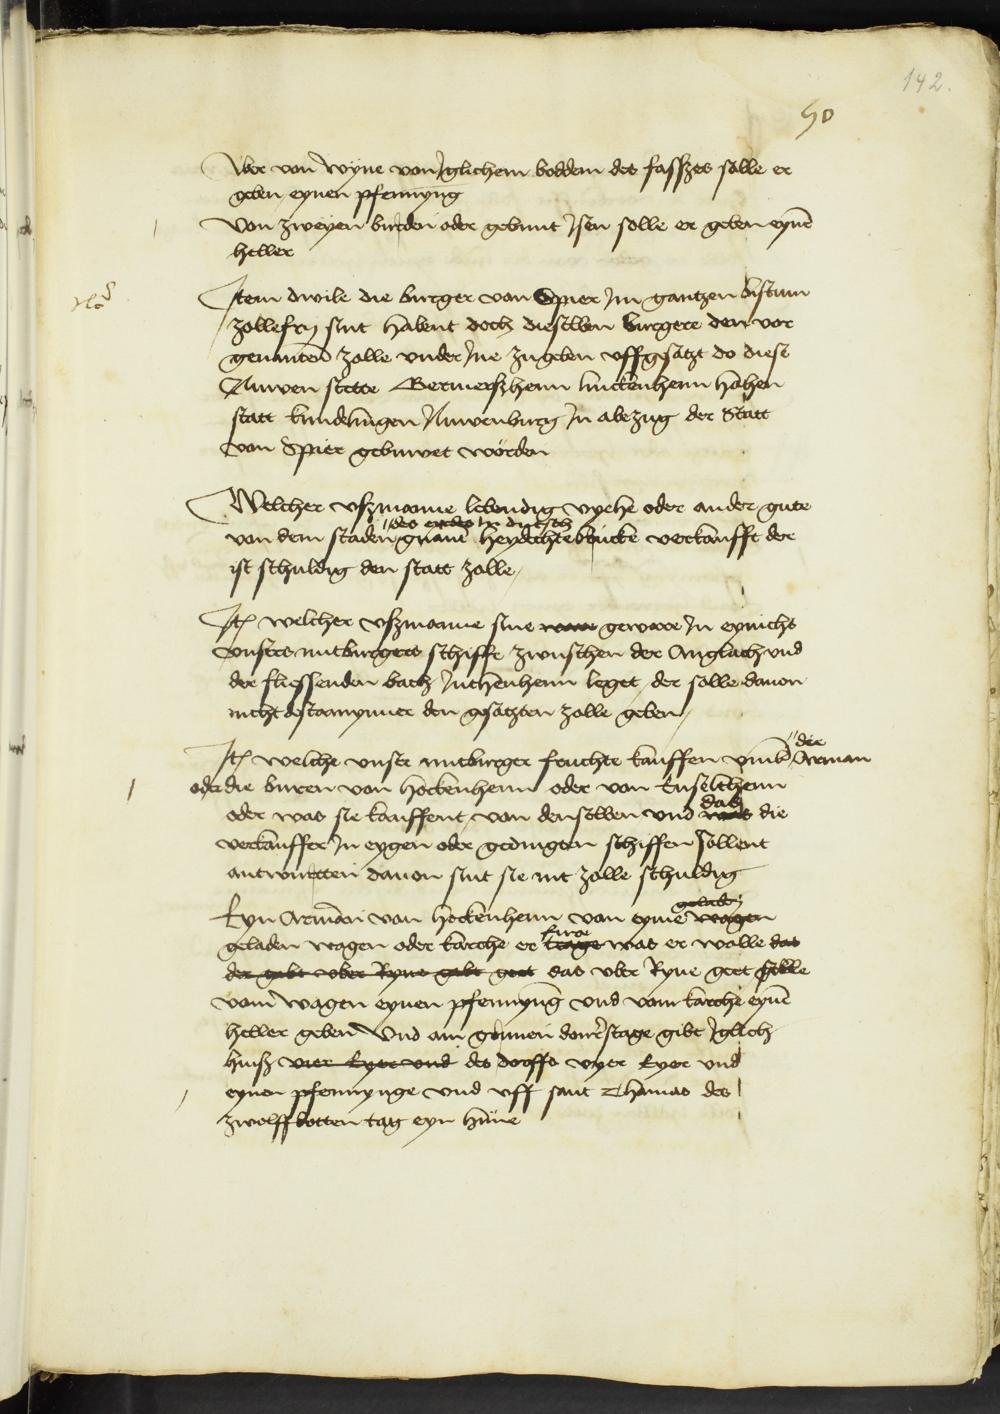 142.
50
Aber von wyne von Iglichem boddem des fasszes solle er
geben eynen pfennyng
Von zweyen burden oder gebunt Isen solle er geben eynē
heller
Item dwile die burger von Spier Im gantzen bistum
zollefry sint habent doch dieselben burgere den vor
genanten zolle vnder Ine zugeben vffgesatzt do diese
Nuwen stette Germerszheim lutteñheim
statt Nuwenburg In abezug der Statt
von Spier gebuwet worden
Welcher vszmanne lebendig vyehe oder ander gute
des In
von dem staden verkaufft der
ist schuldig den statt zolle
Itē welcher vszmanne sine geware In eynichs
vnsers mitburgers schiffe zwuschen der Anglach vnd
der fliessenden bach leget der solle dauon
nicht destomynner den gesatzten zolle geben
die
Itē welche vnser mitburger fruchte kauffen vmb Arman
oder die buren von hockenheim oder von
das
oder was sie kauffent von denselben vnd was die
verkauffer In eygen oder gedingten schiffen sollent
antwurtten dauon sint sie nit zolle schuldig
geladen
Eyn Arman von hockenheim von eyme wagen
fure
geladen wagen oder karche er trage was er wolle das
der gabt vber Ryne gabt geet das vber Ryne geet solle
vom wagen eynen pfennyng vnd vom karche eynē
heller geben Vnd am grunen donrstage gibt Iglich
husz vier Eyer vnd des dorffs vyer Eyer vnd
eynen pfennynge vnd vff sant Thomas des
zwolffbotten tag eyn hune